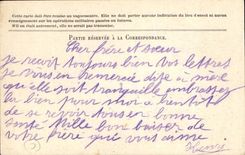 Cette carte doit être remise au vaguemestre. Elle ne doit porter aucune indication du lieu d'envoi ni aucun
renseignement sur les opérations militaires passées ou futures.
S'il en était autrement, elle ne serait pas transmise.
PARTIE RÉSERVÉE A LA CORRESPONDANCE.
Cher frère et sœur
je reçoit toujours bien vos lettres
je vous en remercie dite a mère
qu'elle soit tranquille embrassez
la bien pour moi a bientôt
de se revoir tous en bonne
santé Mille bon baiser de
votre frère qui vous aime
Henri